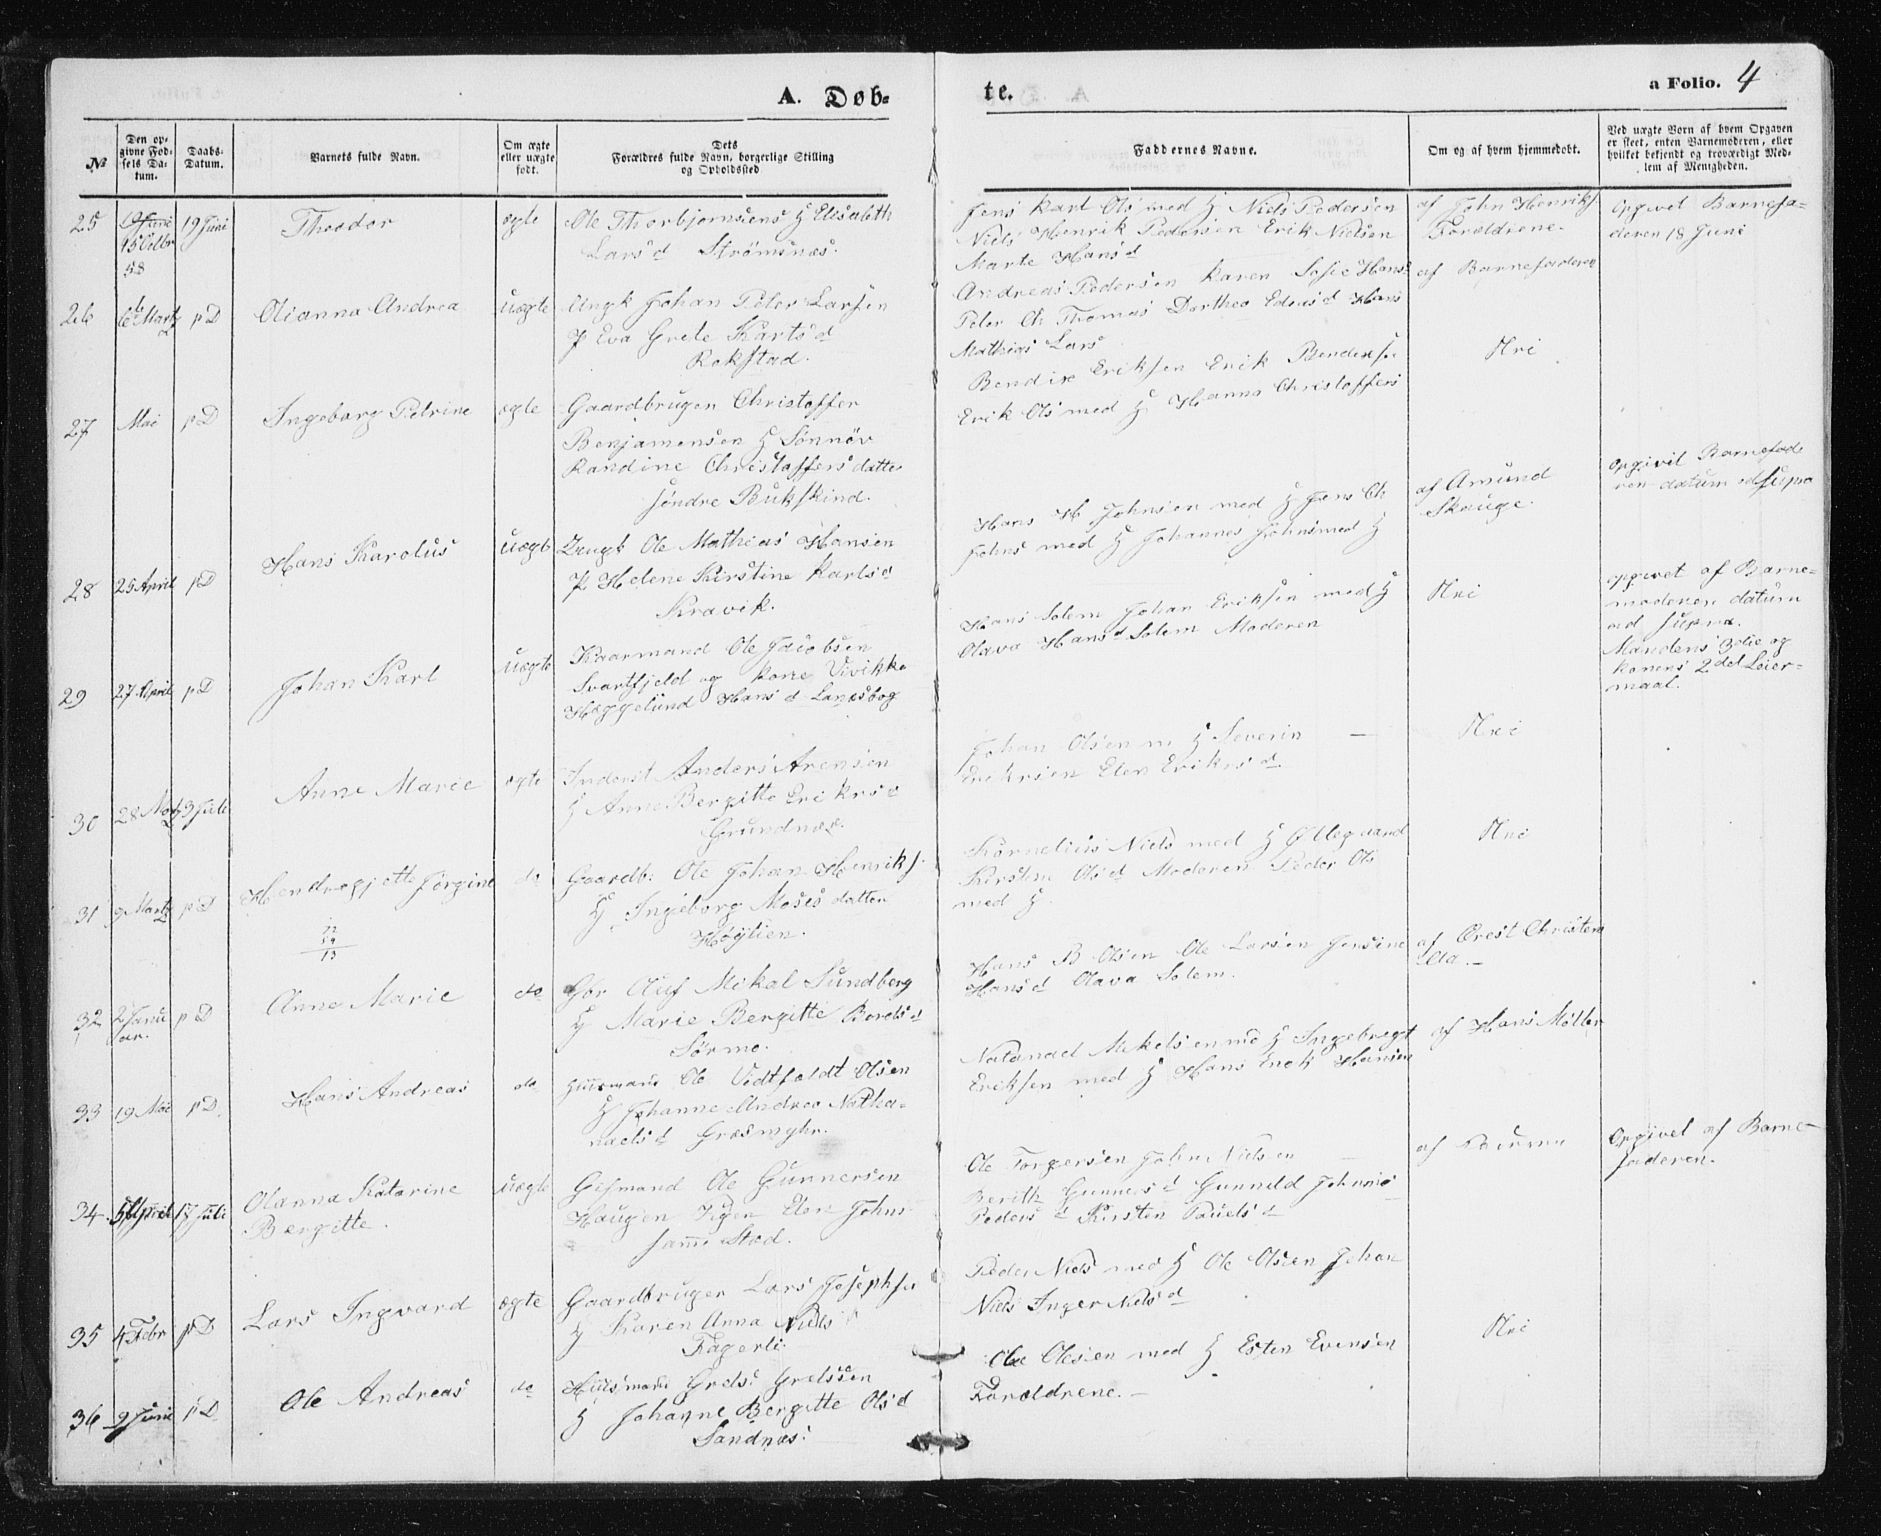 A. Døb-
te.
a Folio. 4
№
Den op-
givne Fød-
sels Da-
tum.
Daabs-
Datum.
Barnets fulde Navn.
Om ægte
eller uægte
født.
Dets
Forældres fulde Navn, borgerlige Stilling
og Opholdssted
Faddernes Navne.
Om og af hvem hjemmedøbt.
Ved uægte Børn af hvem Opgaven
er skeet, enten Barnemoderen, eller
hvilket bekjendt og troværdigt Med-
lem af Menigheden.
25
15 Octbr
58
19 Juni
Theodor
ægte
Ole Thorbjørnsens H Elisabeth
Lars d Strømsnæs.
Jens Karl Ols med H Niels Pedersen
Niels Henrik Pedersen Erik Nielsen
Marte Hans d
af John Henriks
Forældrene
Opgivet Barnefa-
deren 18 Juni
26
6 Marts
p D
Olianna Andrea
uægte
Ungk Johan Peter Larsen
P Eva Grete Karls d
Rokstad.
Andreas Pedersen Karen Sofie Hans
Peter Ch Thomas Dorthea Edeas d Hans
Mathias Lars
af Barnefaderen
27
Mai
p D
Ingeborg Petrine
ægte
Gaardbrugen Christoffer
Benjamensen H Sønnøv
Randine Christoffers datter
søndre Bukskind.
Bendix Eriksen Erik Bendixsen
Erik Ols med H Hanna Christoffers
Nei
28
25 April
p D
Hans Karolus
uægte
Ungk Ole Mathias Hansen
P Helene Kirstine Karls d
Kravik.
Hans H Johnsen med H Jens Ch
Johns med H Johannes Johns med H
af Amund
Skauge.
opgivet Barnefade
ren datum ad supra
29
27 April
p D
Johan Karl
uægte
Kaarmand Ole Jacobsen
Svartfjeld og Kone Vivikke
Heggelund Hans d Lanesbog
Hans Solem Johan Eriksen med H
Olava Hans d Solem Moderen
Nei
opgivet af Barne-
moderen datum
ad supra.
Mandens 3die og
konens 2det Leier-
maal.
30
28 Marts
3 Juli
Anne Marie
ægte
Inderst Anders Arensen
H Anne Bergitte Eriks d
Grundnæs.
Johan Olsen m H Severin
Eriksen Elen Eriks d
Nei
31
9 Marts
p D
Hendregjette Jørgine
do
Gaardb. Ole Johan Henriks
H Ingeborg Moses datter
Høylien.
Kornelius Niels med H Øllegaard
Kirstine Ols d Moderen Peder Ols
med H
Nei
72
59
13
32
2 Janu
ar.
p D
Anne Marie
do
Gbr Oluf Mikal Sundberg
H Marie Bergitte Bords d
Sørmo.
Hans B Olsen Ole Larsen Jensine
Hans d Olava Solem.
af Orest Christens
33
19 Mai
p D.
Hans Andreas
do
Huusmand Ole Vidtfeldt Olsen
H Johanne Andrea Natha-
naels d Græsmyhr.
Natanael Mikelsen md H Ingebregt
Eriksen med H Hans Enok Hansen
af Hans Møller
34
5 April
17 Juli
Olanna Katarine
Bergitte.
uægte
Gifmand Ole Gunnersen
Haugen Pigen Elen Johns
samme Sted.
Ole Torgersen John Nielsen
Berith Gunners d Gunnild Johnsd
Peders d Kirsten Pauels d
af
Opgivet af Barne-
faderen.
35
4 Febr
p D
Lars Ingvard
ægte
Gaardbruger Lars Josephsen
H Karen Anna Niels d
Fagerli.
Peder Niels med H Ole Olsen Johan
Niels Inger Niels d
36
9 Juni
p D
Ole Andreas
do
Huusmand Grels Grelssen
H Johanne Bergitte Ols d
Sandnæs.
Ole Olesen med H Esten Evensen
Forældrene.
Nei